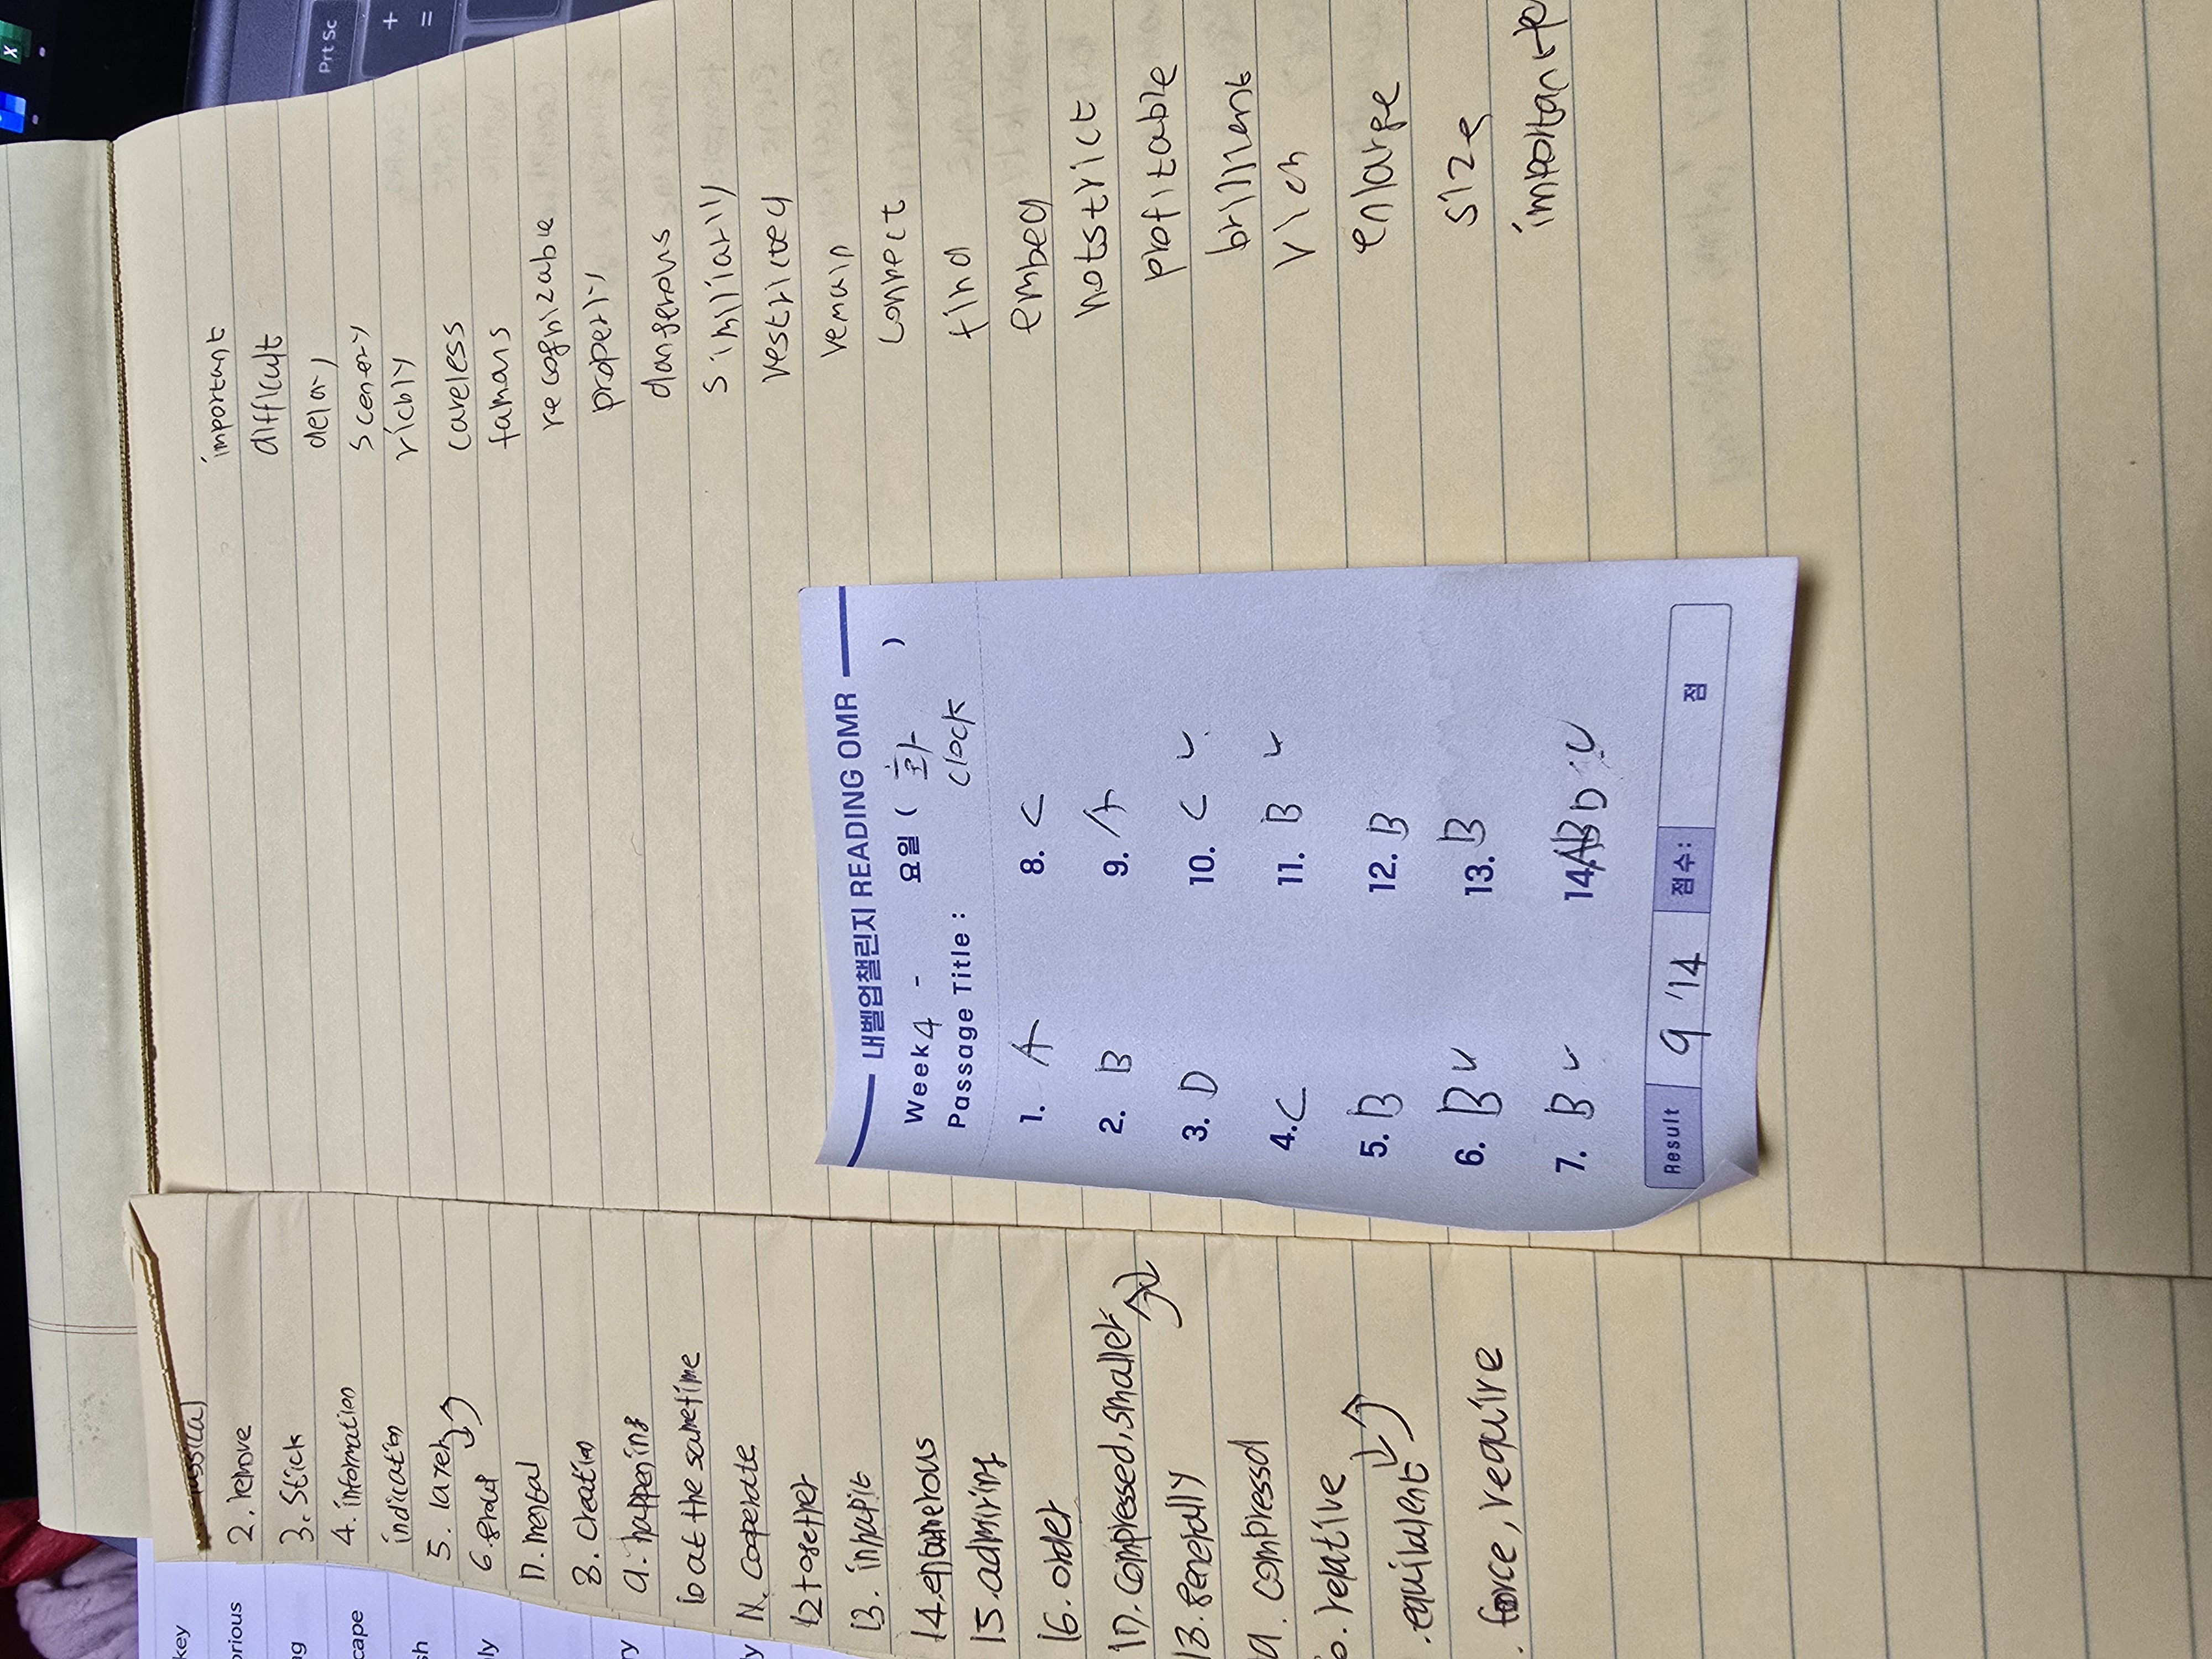 PrtSc
+
=
X
important
difficult
delay
scenery
richly
careless
famous
recognizable
properly
dangerous
similiarly
restricted
remain
connect
find
embed
not strict
profitable
brillient
rich
enlarge
size
important
내벨업챌린지 READING OMR
Week 4 - 요일 ( 화 )
Passage Title : clock
1. A
2. B
3. D
4. C
5. B
6. B ✓
7. B ✓
8. C
9. A
10. C ✓
11. B ✓
12. B
13. B
14. D ✓
Result 9/14 점수: 점
2. remove
3. Stick
4. information
indication
5. layer
6. grow
7. mental
8. creation
9. happening
10 at the sametime
11. cooperate
12 together
13. inhabit
14.
15. admiring
16. order
17. compressed, smaller
18. generally
19. compressed
0. relative
. equivalent
. force, require
key
orious
ng
cape
sh
ly
ry
ly